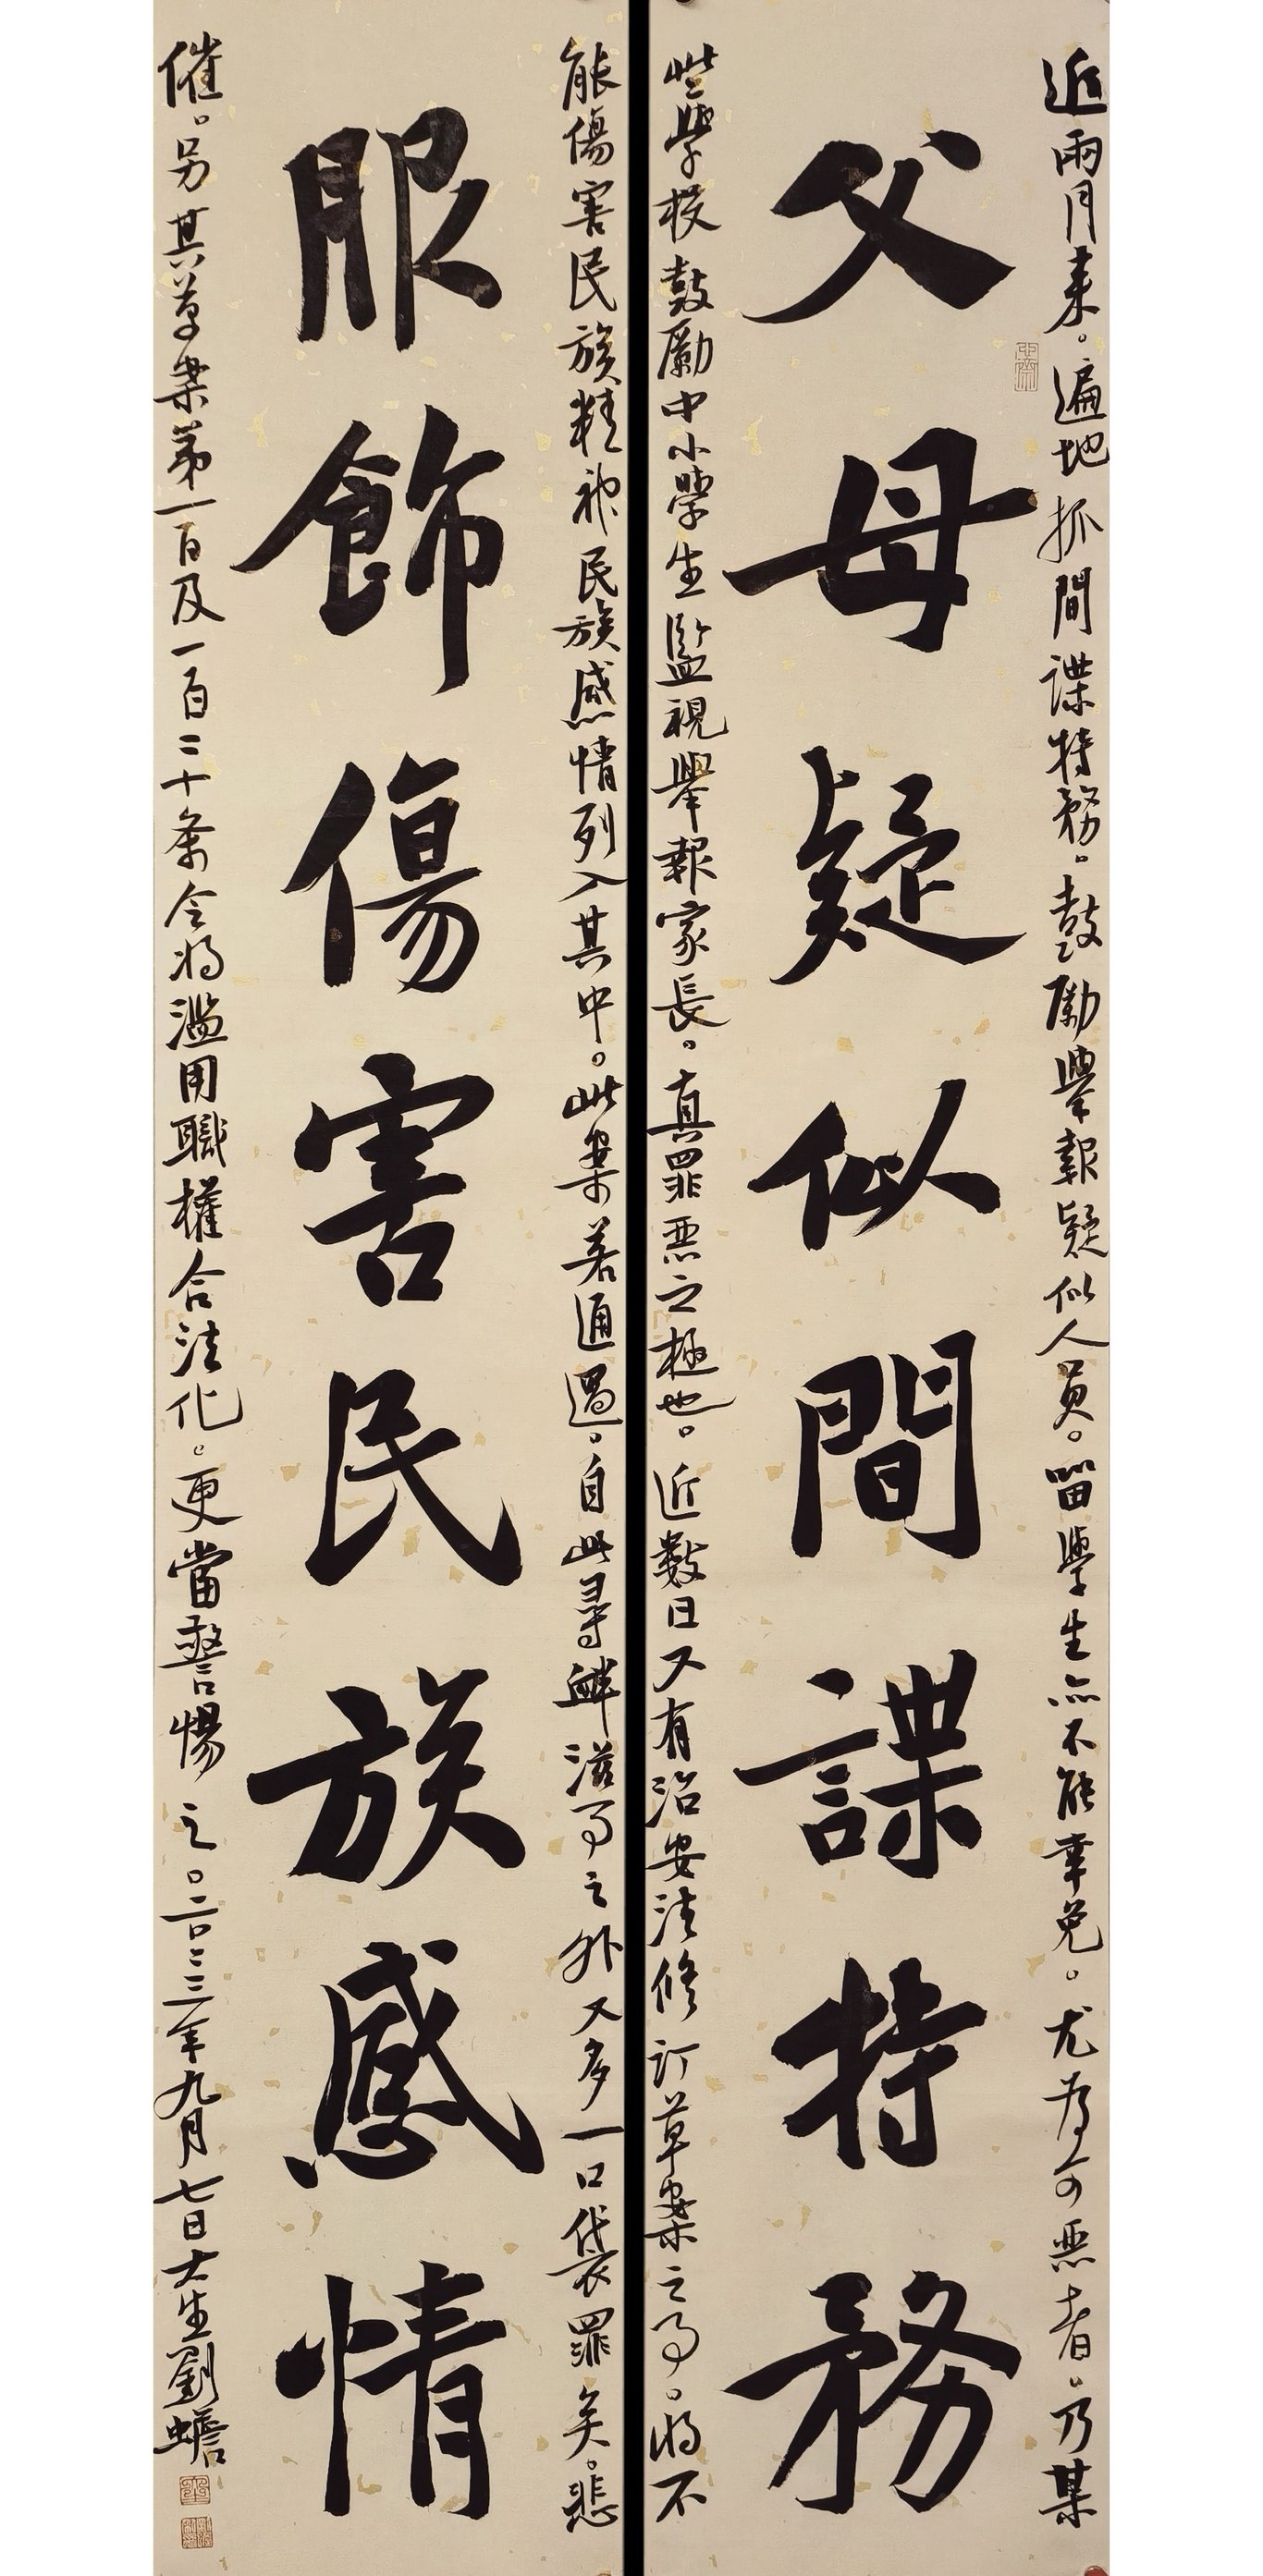 父母疑似間諜特務
服飾傷害民族感情
近兩月来。遍地抓間諜特務。鼓勵舉報疑似人員。留學生亦不能幸免。尤為可惡者。乃某
些學校鼓勵中小學生監視舉報家長。真罪惡之極也。近數日又有治安法修訂草案之事。將不
能傷害民族精神民族感情列入其中。此案若通過。自此尋衅滋事之外又多一口袋罪矣。悲
催。另其草案第一百及一百二十条令將濫用職權合法化。更當警惕之。二〇二三年九月七日大生劉蟾